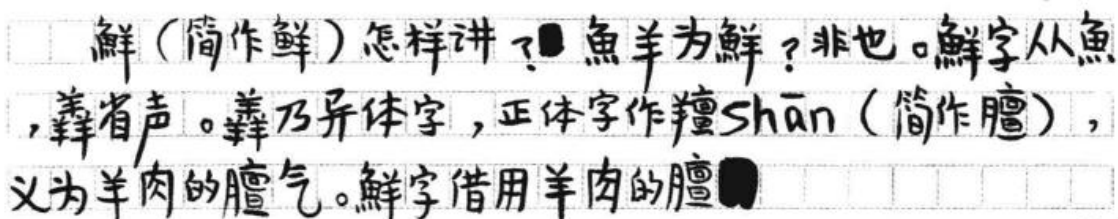 鮮（简作鲜）怎样讲？魚羊为鮮？非也。鮮字从魚
，羴省声。羴乃异体字，正体字作羶shān（简作膻），
义为羊肉的膻气。鮮字借用羊肉的膻